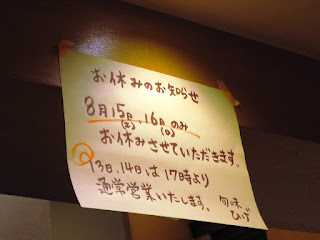 お休みのお知らせ
8月15日(土)、16日(日)のみ
お休みさせていただきます。
◎13日、14日は17時より
通常営業いたします。 旬味
ひげ